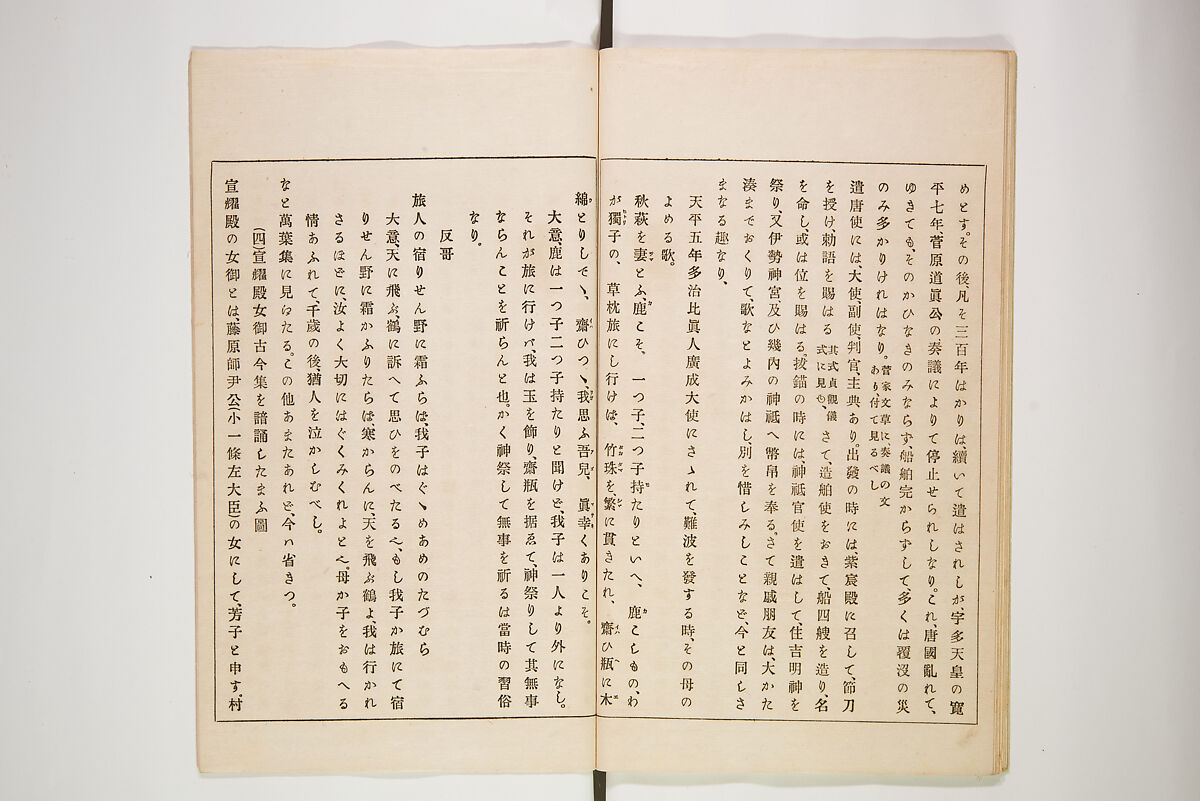 めとす。その後、凡そ三百年はかりは、續いて遣はされしが、宇多天皇の寛
平七年、菅原道眞公の奏議によりて停止せられしなり。これ、唐國亂れて、
ゆきても、そのかひなきのみならず、船舶完からずして多くは覆沒の災
のみ多かりけれはなり。菅家文草に、奏議の文あり、付て見るべし
遣唐使には、大使、副使、判官、主典あり。出發の時には、紫宸殿に召して、節刀
を授け、勅語を賜はる其式貞觀儀式に見ゆ、さて、造舶使をおきて、船四艘を造り、名
を命し、或は位を賜はる。拔錨の時には、神祗官使を遣はして、住吉明神を
祭り、又伊勢神宮及ひ幾內の神祗へ幣帛を奉る。さて親戚朋友は、大かた
湊までおくりて、歌なとよみかはし、別を惜しみしことなど、今と同じさ
まなる趣なり、
天平五年多治比眞人廣成大使にさゝれて、難波を發する時、その母の
よめる歌。
秋萩を妻とふ、鹿こそ、一つ子、二つ子持たりといへ、鹿こじもの、わ
が獨子の、草枕旅にし行けば、竹珠を、繁に貫きたれ、齋ひ瓶に木
綿とりしでゝ、齋ひつゝ、我思ふ吾兒、眞幸くありこそ。
大意、鹿は一つ子二つ子持たりと聞けど、我子は一人より外になし。
それが旅に行けバ、我は玉を飾り、齋瓶を据ゑて、神祭りして其無事
ならんことを祈らんと也。かく神祭して無事を祈るは當時の習俗
なり。
反哥
旅人の宿りせん野に霜ふらば、我子はぐゝめあめのたづむら
大意、天に飛ぶ、鶴に訴へて思ひをのべたる也、もし我子か旅にて宿
りせん野に霜かふりたらば寒からんに、天を飛ぶ鶴よ、我は行かれ
さるほどに、汝よく大切にはぐくみくれよと也。母か子をおもへる
情あふれて、千歲の後、猶人を泣かしむべし。
なと萬葉集に見ゆたる。この他あまたあれど、今ハ省きつ。
(四)宣耀殿女御古今集を諳誦したまふ圖
宣耀殿の女御とは、藤原師尹公(小一條左大臣)の女にして、芳子と申す、村